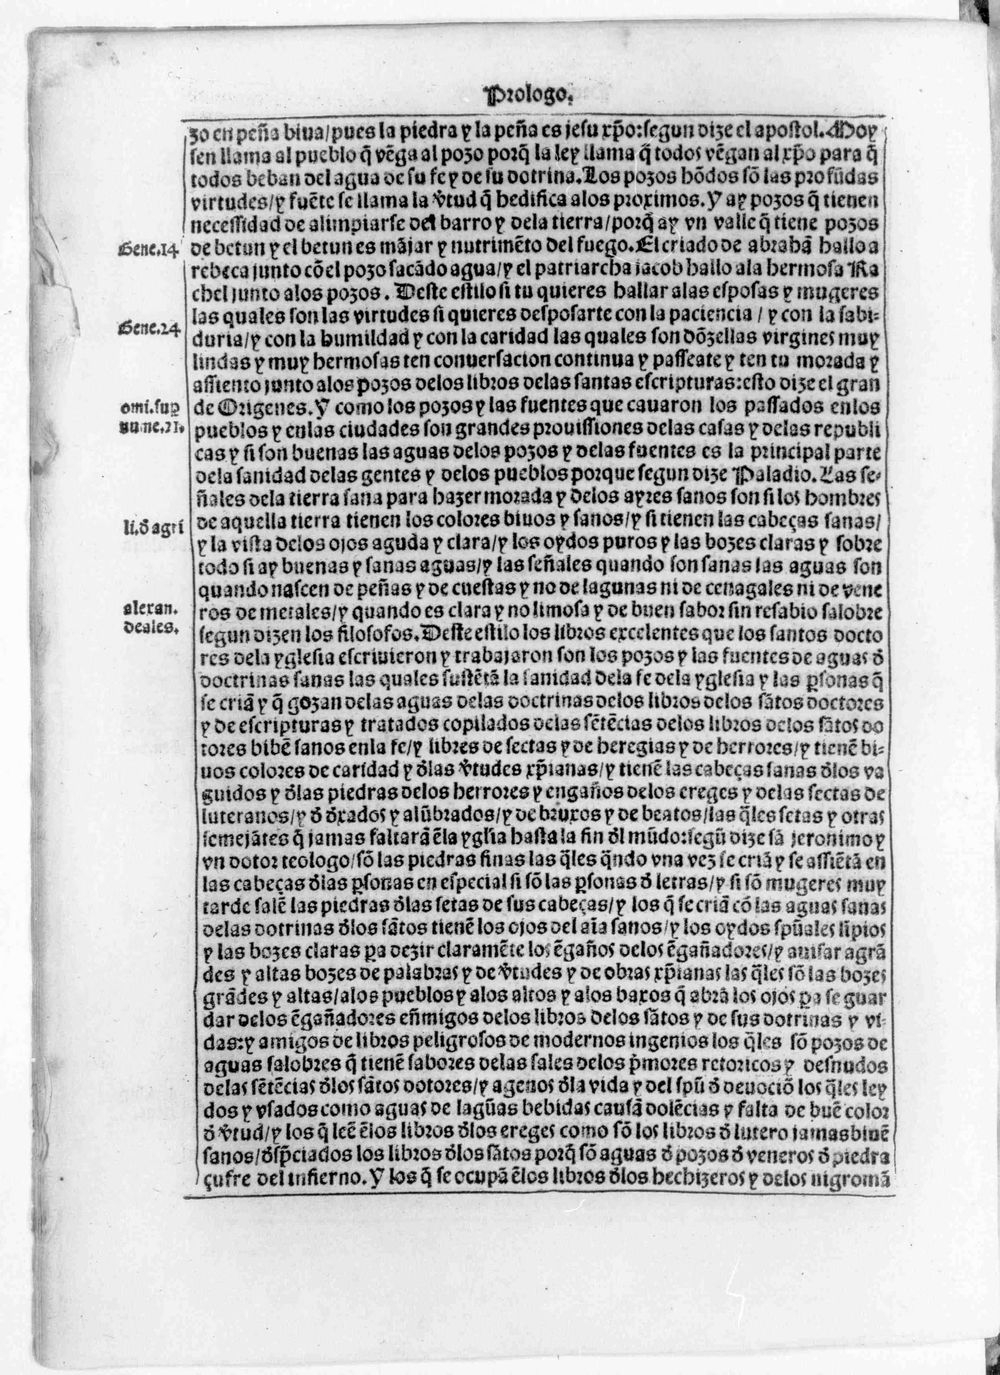 Prologo.
zo en peña biua/pues la piedra y la peña es jesu xp̃o:segun dize el apostol.Moy
sen llama al pueblo q̃ vẽga al pozo porq̃ la ley llama q̃ todos vẽgan al xp̃o para q̃
todos beban del agua de su fe y de su dotrina.Los pozos hõdos sõ las profũdas
virtudes/y fuẽte se llama la ṽtud q̃ hedifica alos proximos.Y ay pozos q̃ tienen
necessidad de alimpiarse del barro y dela tierra/porq̃ ay vn valle q̃ tiene pozos
Gene.14
de betun y el betun es mãjar y nutrimẽto del fuego.El criado de abrahã hallo a
rebeca junto cõel pozo sacãdo agua/y el patriarcha jacob hallo ala hermosa Ra
chel junto alos pozos. Deste estilo si tu quieres hallar alas esposas y mugeres
las quales son las virtudes si quieres desposarte con la paciencia/y con la sabi-
Gene.24
duria/y con la humildad y con la caridad las quales son dõzellas virgines muy
lindas y muy hermosas ten conuersacion continua y passeate y ten tu morada y
assiento junto alos pozos delos libros delas santas escripturas:esto dize el gran
omi.sup
de Origenes.Y como los pozos y las fuentes que cauaron los passados enlos
nume.21.
pueblos y enlas ciudades son grandes prouissiones delas casas y delas republi
cas y si son buenas las aguas delos pozos y delas fuentes es la principal parte
dela sanidad delas gentes y delos pueblos porque segun dize Paladio.Las se-
ñales dela tierra sana para hazer morada y delos ayres sanos son si los hombres
li.d̃ agri
de aquella tierra tienen los colores biuos y sanos/y si tienen las cabeças sanas/
y la vista delos ojos aguda y clara/y los oydos puros y las bozes claras y sobre
todo si ay buenas y sanas aguas/y las señales quando son sanas las aguas son
quando nascen de peñas y de cuestas y no de lagunas ni de cenagales ni de vene
alexan.
ros de metales/y quando es clara y no limosa y de buen sabor sin resabio salobre
deales.
segun dizen los filosofos.Deste estilo los libros excelentes que los santos docto
res dela yglesia escriuieron y trabajaron son los pozos y las fuentes de aguas d̃
doctrinas sanas las quales sustẽtã la sanidad dela fe dela yglesia y las p̱sonas q̃
se criã y q̃ gozan delas aguas delas doctrinas delos libros delos sãtos doctores
y de escripturas y tratados copilados delas sẽtẽcias delos libros delos sãtos do
tores bibẽ sanos enla fe/y libres de sectas y de heregias y de herrores/y tienẽ bi-
uos colores de caridad y d̃las ṽtudes xp̃ianas/y tienẽ las cabeças sanas d̃los va
guidos y d̃las piedras delos herrores y engaños delos ereges y delas sectas de
luteranos/y d̃ d̃xados y alũbrados/y de bruxos y de beatos/las q̃les setas y otras
semejãtes q̃ jamas faltarã ẽla ygl̃ia hasta la fin d̃l mũdo:segũ dize sã jeronimo y
vn dotor teologo/sõ las piedras finas las q̃les q̃ndo vna vez se criã y se assiẽtã en
las cabeças d̃las p̱sonas en especial si sõ las p̱sonas d̃ letras/y si sõ mugeres muy
tarde salẽ las piedras d̃las setas de sus cabeças/y los q̃ se criã cõ las aguas sanas
delas dotrinas d̃los sãtos tienẽ los ojos del aĩa sanos/y los oydos sp̃uales lĩpios
y las bozes claras p̱a dezir claramẽte los ẽgaños delos ẽgañadores/y auisar agrã
des y altas bozes de palabras y de ṽtudes y de obras xp̃ianas las q̃les sõ las bozes
grãdes y altas/alos pueblos y alos altos y alos baxos q̃ abrã los ojos p̱a se guar
dar delos ẽgañadores eñmigos delos libros delos sãtos y de sus dotrinas y vi-
das:y amigos de libros peligrosos de modernos ingenios los q̃les sõ pozos de
aguas salobres q̃ tienẽ sabores delas sales delos p̃mores retoricos y desnudos
delas sẽtẽcias d̃los sãtos dotores/y agenos d̃la vida y del sp̃u d̃ deuociõ los q̃les ley
dos y vsados como aguas de lagũas bebidas causã dolẽcias y falta de buẽ color
d̃ ṽtud/y los q̃ leẽ ẽlos libros d̃los ereges como sõ los libros d̃ lutero jamas biuẽ
sanos/d̃sp̃ciados los libros d̃los sãtos porq̃ sõ aguas d̃ pozos d̃ veneros d̃ piedra
çufre del infierno.Y los q̃ se ocupã ẽlos libros d̃los hechizeros y delos nigromã